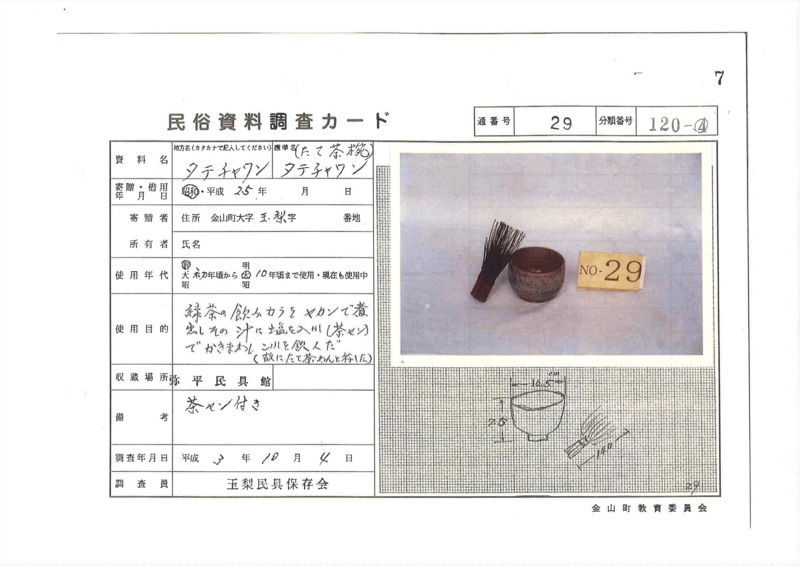 7
民俗資料調査カード
通番号 29 分類番号 120-④
資料名 地方名(カタカナで記入してください) タテチャワン 標準名 (たて茶椀) タテチャワン
寄贈・借用年月日 昭和・平成 25年 月 日
寄贈者 住所 金山町大字 玉梨 字 番地
所有者 氏名
使用年代 明 大 昭 初年頃から 明 大 昭 10年頃まで使用・現在も使用中
使用目的 緑茶の飲みカラをヤカンで煮
出しその汁に塩を入れ(茶セン)
でかきまわしこれを飲んだ
(故にたて茶わんと称した)
収蔵場所 弥平民具館
備考 茶セン付き
調査年月日 平成 3年 10月 4日
調査員 玉梨民具保存会
NO-29
10.5cm
7.5
140
29
金山町教育委員会